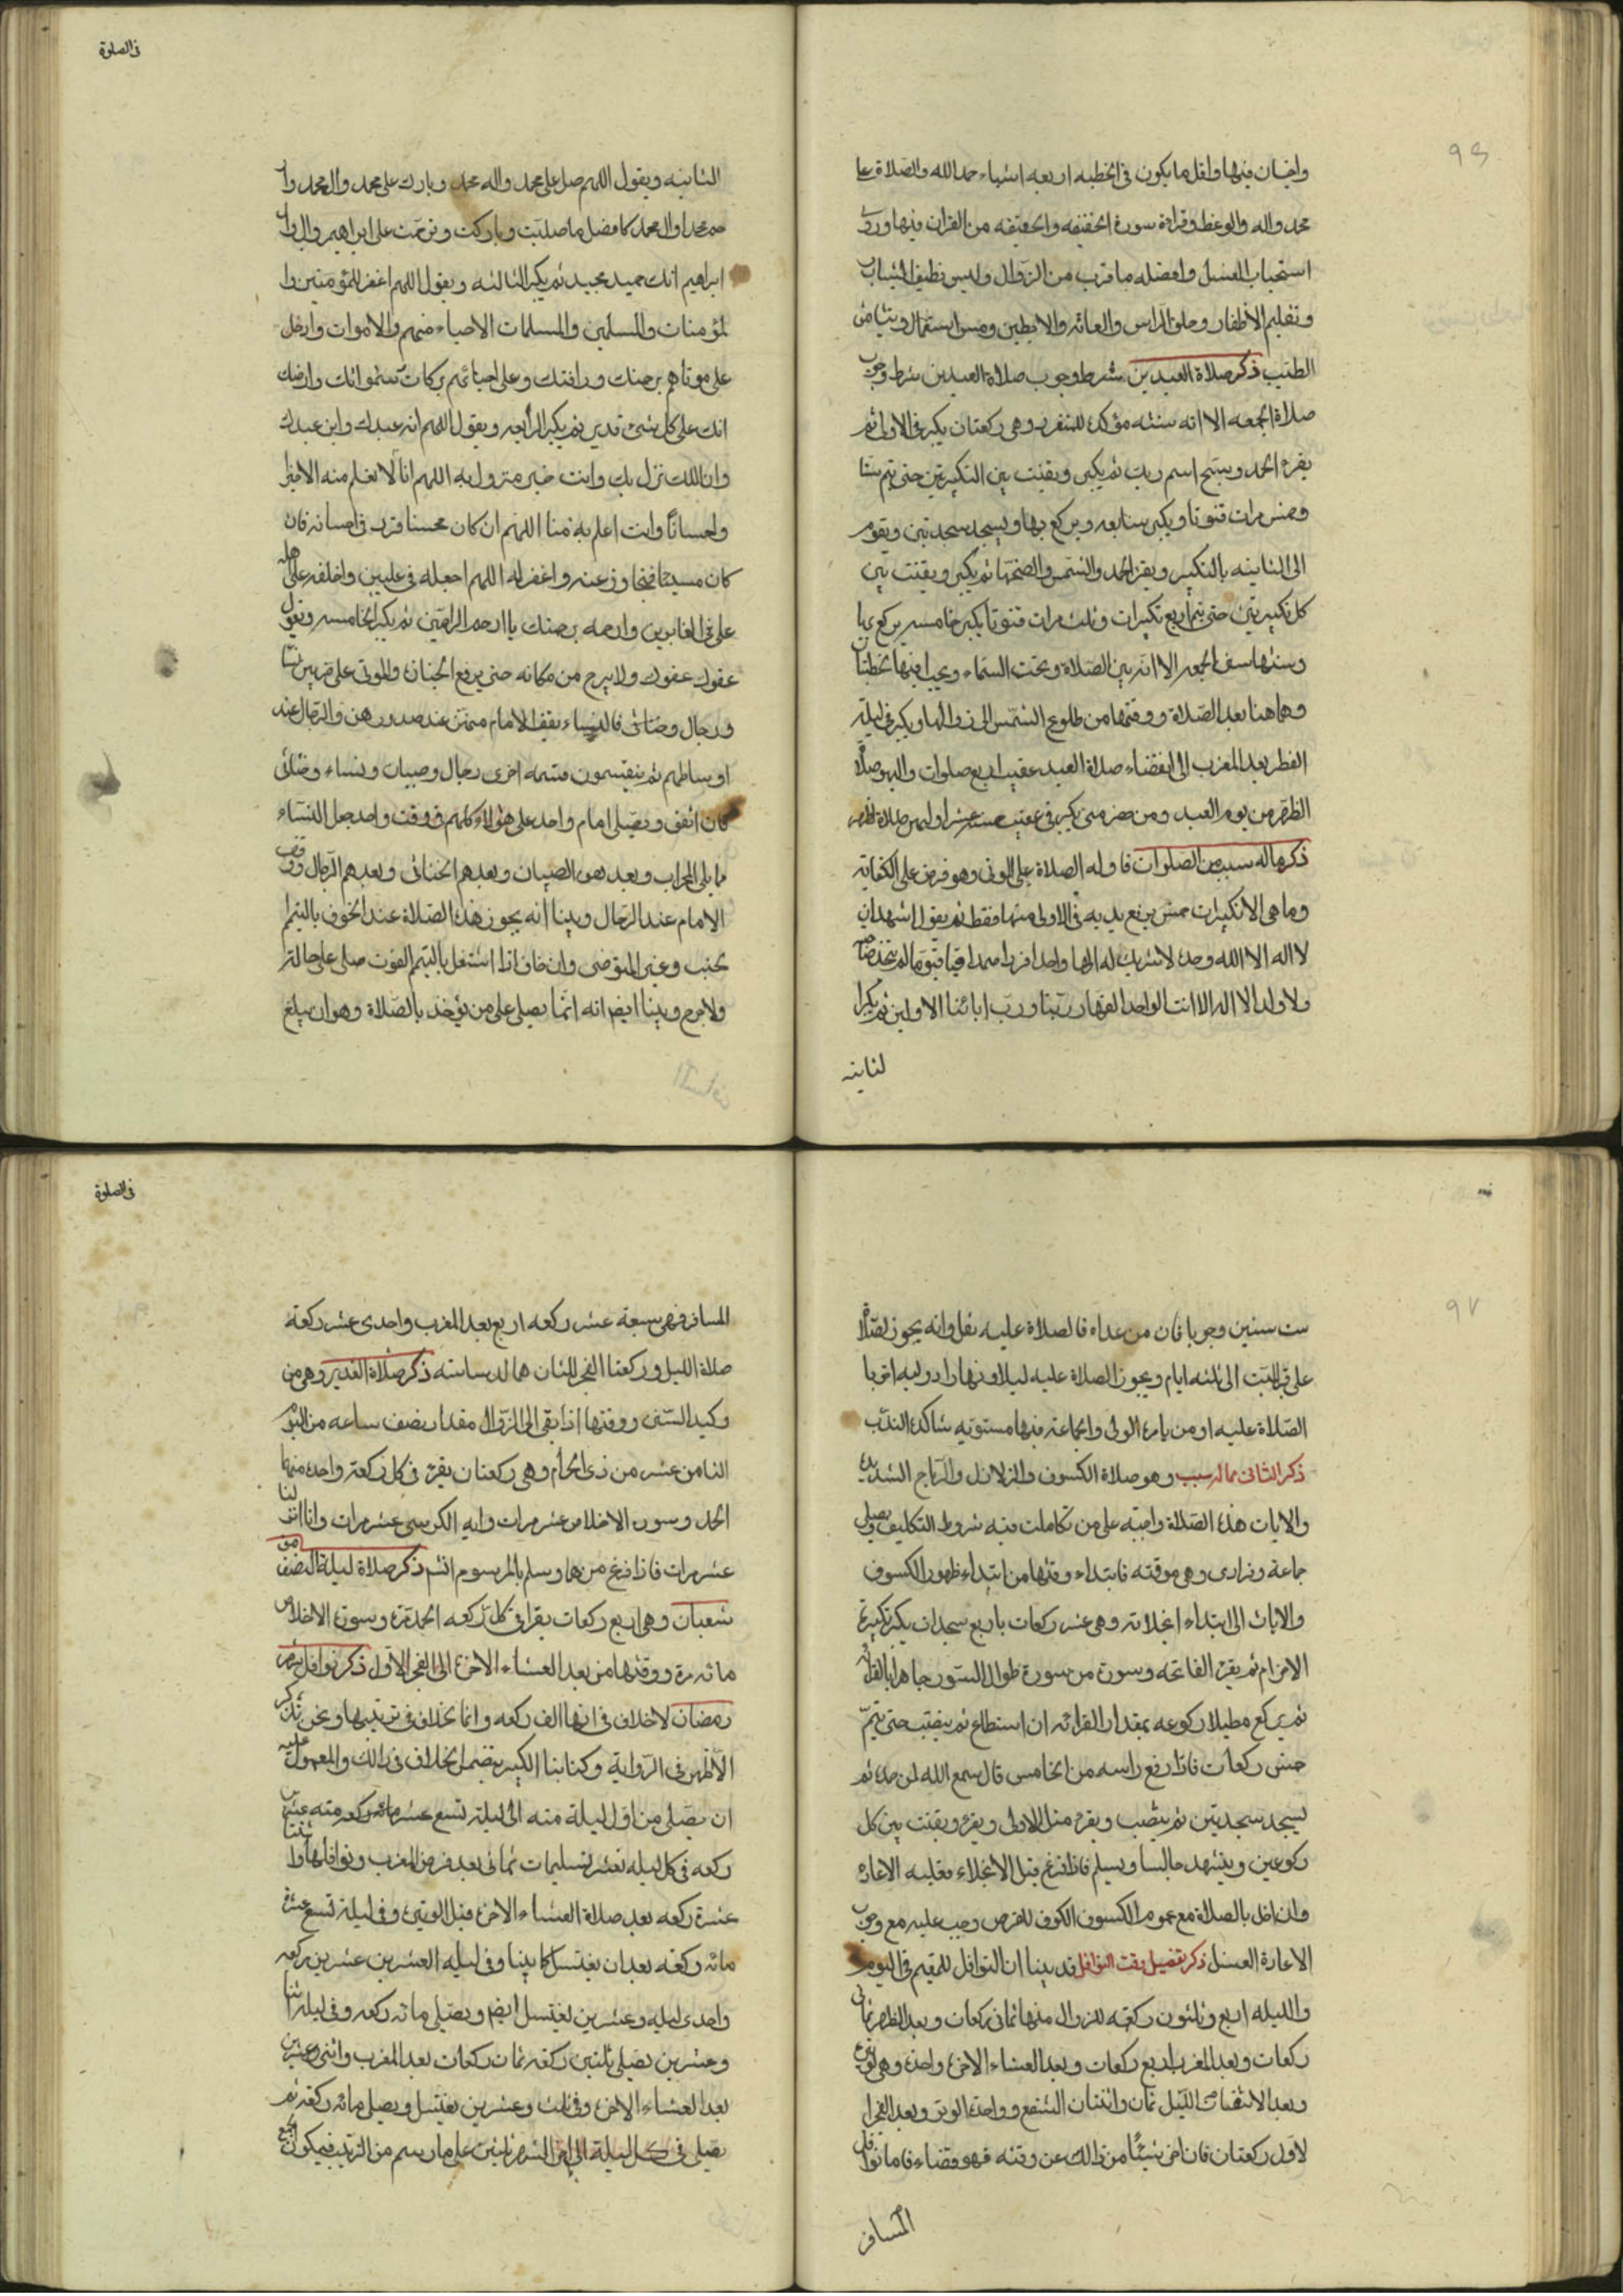 ٩٦
واجبان فيها واقل ما يكون في الخطبه اربعه اشياء حمد الله والصلاة علی
محمد واله والوعظ وقراءة سورة الخفيفه والخفيفه من القران فيها وروی
استحباب الغسل وافضله ما قرب من الزوال ولبس نظيف الثياب
وتقليم الاظفار وحلق الراس والعانه والابطين ومس
الطيب ذكر صلاة العيدين شرط وجوب صلاة العيدين شرط وجوب
صلاة الجمعه الا انه سنته موكده للمنفرد وهی ركعتان يكبر فی الاولی ثم
يقرء الحمد وسبح اسم ربك ثم يكبر ويقنت بين التكبيرتين حتی يتم ستا
وخمس مرات قنوتا ويكبر سابعه ويركع بها ويسجد سجدتين ويقوم
الی الثانيه بالتكبير ويقرء الحمد والشمس وضحها ثم يكبر ويقنت بين
كل تكبيرتين حتی يتم اربع تكبيرات وثلث مرات قنوتا يكبر خامسه يركع بها
وسننها سنن الجمعه الا انه بين الصلاة وتحت السماء ويجب فيها خطبتان
وهما هنا بعد الصلاة ووقتها من طلوع الشمس الی زوالها ويكبر فی ليلة
الفطر بعد المغرب الی انقضاء صلاة العيد عقيب اربع صلوات واليوم صلاة
الظهر من يوم العيد ومن حضر منی يكبر فی عقيب خمسة عشر اوليهن صلاة ظهر
ذكر ماله سبب من الصلوات فاوله الصلاة علی الموتی وهو فرض علی الكفايه
وما هی الا تكبيرات خمس يرفع يديه فی الاولی منها فقط ثم يقول اشهد ان
لا اله الا الله وحده لا شريك له الها واحدا فردا صمدا قيا قيوما لم يتخذ صاحبة
ولا ولدا لا اله الا انت الواحد القهار ربنا ورب ابائنا الاولين ثم يكبر ا
لثانيه
فی الصلوة
الثانيه ويقول اللهم صل علی محمد واله محمد وبارك علی محمد وال محمد وا
رحم محمدا وال محمد كافضل ما صليت وباركت وترحمت علی ابراهيم وال
ابراهيم انك حميد مجيد ثم يكبر الثالثه ويقول اللهم اغفر للمؤمنين وا
لمؤمنات والمسلمين والمسلمات الاحياء منهم والاموات وادخل
علی موتاهم رحمتك ورافتك وعلی احيائهم بركات سمواتك وارضك
انك علی كل شیء قدير ثم يكبر الرابعه ويقول اللهم انه عبدك وابن عبدك
وان امتك نزل بك وانت خير منزول به اللهم انا لا نعلم منه الا خيرا
واحسانا وانت اعلم به منا اللهم ان كان محسنا فزد فی احسانه فان
كان مسيئا فتجاوز عنه واغفر له اللهم اجعله فی عليين واخلفه علی اهله
علی فی الغابرين وارحمه برحمتك يا ارحم الراحمين ثم يكبر الخامسه ويقول
عفوك عفوك ولا يبرح من مكانه حتی يرفع الجنازة والموتی علی ضربين نسا
ورجال وخناثی فالنساء يقف الامام منهن عند صدورهن والرجال عند
اوساطهم ثم ينقسمون قسمه اخری رجال وصبيان ونساء وخناثی
فان اتفق ويصلی امام واحد علی هؤلاء كلهم فی وقت واحد جعل النساء
ما يلی المحراب وبعدهن الصبيان وبعدهم الخناثی وبعدهم الرجال ووقف
الامام عند الرجال وبينا انه يجوز هذه الصلاة عند الخوف بالتيمم ا
لجنب وغير المتوضی وان خاف اذا اشتغل بالتيمم الفوت صلی علی حالته
ولا حرم وبينا ايضا انه انما يصلی علی من يؤخذ بالصلاة وهو ان يبلغ
٩٧
ست سنين وجوبا فان من عداه فالصلاة عليه نفل وانه يجوز الصلاة
علی قبر الميت الی ثلثه ايام ويجوز الصلاة عليه ليلا ونهارا ووليه
الصلاة عليه او من يامره الولی والجماعة فيها
ذكر الثانی مما له سبب وهو صلاة الكسوف والزلازل والرياح الشديدة
والايات هذه الصلاة واجبة علی من تكاملت فيه شروط التكليف ويصلی
جماعة وفرادی وهی موقته فابتداء وقتها من ابتداء ظهور الكسوف
والايات الی ابتداء انجلائه وهی عشر ركعات باربع سجدات يكبر تكبيرة
الاحرام ثم يقرء الفاتحه وسورة من سورة طوال السور جاهرا بالقراءة
ثم يركع مطيلا ركوعه بمقدار القرائه ان استطاع ثم ينتصب حتی يتم
خمس ركعات فاذا رفع راسه من الخامس قال سمع الله لمن حمده ثم
يسجد سجدتين ثم ينتصب ويقرء مثل الاولی ويقرء ويقنت بين كل
ركوعين ويتشهد جالسا ويسلم فاذا فرغ قبل الانجلاء فعليه الاعاده
وان اخل بالصلاة مع عموم الكسوف للقرص وجب عليه مع وجوب
الاعادة الغسل ذكر تفصيل بقية النوافل قد بينا ان النوافل للمقيم فی اليوم
والليله اربع وثلثون ركعة للزوال منها ثمانی ركعات وبعد الظهر ثمانی
ركعات وبعد المغرب اربع ركعات وبعد العشاء الاخره واحدة وهی الوتيرة
وبعد الانتصاف الليل ثمان واثنتان الشفع وواحدة الوتر وبعد الفجر ا
لاول ركعتان فان اخر شيئا من ذلك عن وقته فهو قضاء فاما نوافل
المسافر
فی الصلوة
المسافر فهی سبعة عشر ركعه اربع بعد المغرب واحدی عشر ركعة
صلاة الليل وركعتا الفجر اللتان هما لدساسته ذكر صلاة الغدير وهی من
وكيد السنن ووقتها اذا بقی الی الزوال مقدار نصف ساعه من اليوم
الثامن عشر من ذی الحجام وهی ركعتان يقرء فی كل ركعة واحدة منهما
الحمد وسورة الاخلاص عشر مرات واية الكرسی عشر مرات وانا انزلنا
عشر مرات فاذا فرغ منهما وسلم بالمرسوم اتم ذكر صلاة ليلة النصف من
شعبان وهی اربع ركعات يقرا فی كل ركعه الحمد مرة وسورة الاخلاص
مائه مرة ووقتها من بعد العشاء الاخره الی الفجر الاول ذكر نوافل شهر
رمضان لا خلاف فی انها الف ركعه وانما الخلاف فی ترتيبها ونحن نذكر
الاظهر فی الرواية وكتابنا الكبير يتضمن الخلاف فی ذالك والمعمول عليه
ان يصلی من اول ليلة منه الی ليلة تسع عشر منه عشرين
ركعه فی كل ليله بعشر تسليمات ثمانی بعد فرض المغرب ونوافلها واثنتا
عشرة ركعه بعد صلاة العشاء الاخره قبل الوتيره وفی ليلة تسع عشرة
مائه ركعة بعد ان يغتسل كما بينا وفی ليله العشرين عشرين ركعه
واحدی ليله وعشرين يغتسل ايضا ويصلی مائه ركعه وفی ليلة اثنا
وعشرين يصلی ثلثين ركعة ثمان ركعات بعد المغرب واثنی وعشرين
بعد العشاء الاخره وفی ثلث وعشرين يغتسل ويصلی مائه ركعة ثم
يصلی فی كل ليلة الی اخر الشهر ثلثين علی ما رسم من الترتيب فيكون الجميع